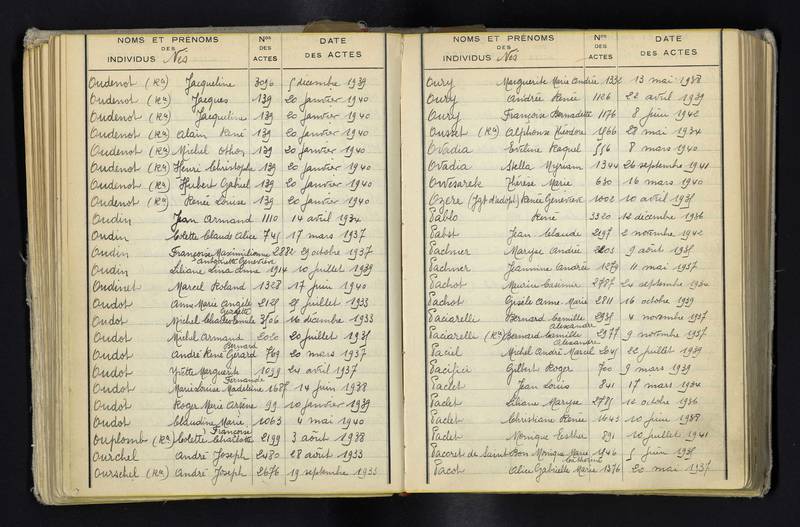 NOMS ET PRÉNOMS DES INDIVIDUS Nés Nos DES ACTES DATE DES ACTES
Oudenot (Rn) Jacqueline 3096 5 decembre 1939
Oudenot (Rn) Jacques 139 20 janvier 1940
Oudenot (Rn) Jacqueline 139 20 janvier 1940
Oudenot (Rn) Alain René 139 20 janvier 1940
Oudenot (Rn) Michel Othon 139 20 janvier 1940
Oudenot (Rn) Henri Christophe 139 20 janvier 1940
Oudenot (Rn) Hubert Gabriel 139 20 janvier 1940
Oudenot (Rn) Renée Louise 139 20 janvier 1940
Oudin Jean Armand 1110 14 avril 1934
Oudin Colette Claude Alice 745 17 mars 1937
Oudin Françoise Maximilienne 2882 29 octobre 1937
Antoinette Geneviève
Oudin Liliane Lina Anne 1914 10 juillet 1939
Oudinet Marcel Roland 1328 17 juin 1940
Oudot Anne Marie Angèle 2129 25 juillet 1933
Georgette
Oudot Michel Charles Emile 3506 16 décembre 1933
Oudot Michel Armand 2020 20 juillet 1935
Bernard
Oudot André René Gérard 769 20 mars 1937
Oudot Yvette Marguerite 1099 24 avril 1937
Fernande
Oudot Marie Louise Madeleine 1687 14 juin 1938
Oudot Roger Marie Arsène 99 10 janvier 1939
Oudot Claudine Marie 1063 4 mai 1940
Françoise
Ouplomb (Rn) Colette Charlotte 2199 3 août 1938
Ourchel André Joseph 2480 28 août 1933
Ourschel (Rn) André Joseph 2676 19 septembre 1933
NOMS ET PRÉNOMS DES INDIVIDUS Nés Nos DES ACTES DATE DES ACTES
Oury Marguerite Marie Andrée 1332 13 mai 1938
Oury Andrée Renée 1126 22 avril 1939
Oury Françoise Bernadette 1176 8 juin 1942
Ousset (Rn) Alphonse Théodore 1566 28 mai 1934
Ovadia Eveline Raquel 556 8 mars 1940
Ovadia Stella Myriam 1344 26 septembre 1941
Owesarek Thérèse Marie 630 16 mars 1940
Ozere (Jgt d'adopt) Renée Geneviève 1002 10 avril 1935
Pablo René 3320 12 décembre 1936
Pabst Jean Claude 2197 2 novembre 1942
Pachner Maryse Andrée 2203 9 août 1935
Pachner Jeannine Andrée 1279 11 mai 1937
Pachot Maurice Casimir 2787 24 septembre 1932
Pachot Gisèle Anne Marie 2811 16 octobre 1939
Paciarelli Bernard Camille 2935 4 novembre 1937
Alexandre
Paciarelli (Rn) Bernard Camille 2977 9 novembre 1937
Alexandre
Paciel Michel André Marcel 2045 22 juillet 1939
Pacifici Gilbert Roger 700 9 mars 1939
Paclet Jean Louis 841 17 mars 1934
Paclet Liliane Maryse 2785 12 octobre 1936
Paclet Christiane Renée 1643 10 juin 1938
Paclet Monique Esther 891 10 juillet 1941
Pacoret de Saint Bon Monique Marie 1546 5 juin 1935
Catherine
Pacot Alice Gabrielle Marie 1376 20 mai 1937